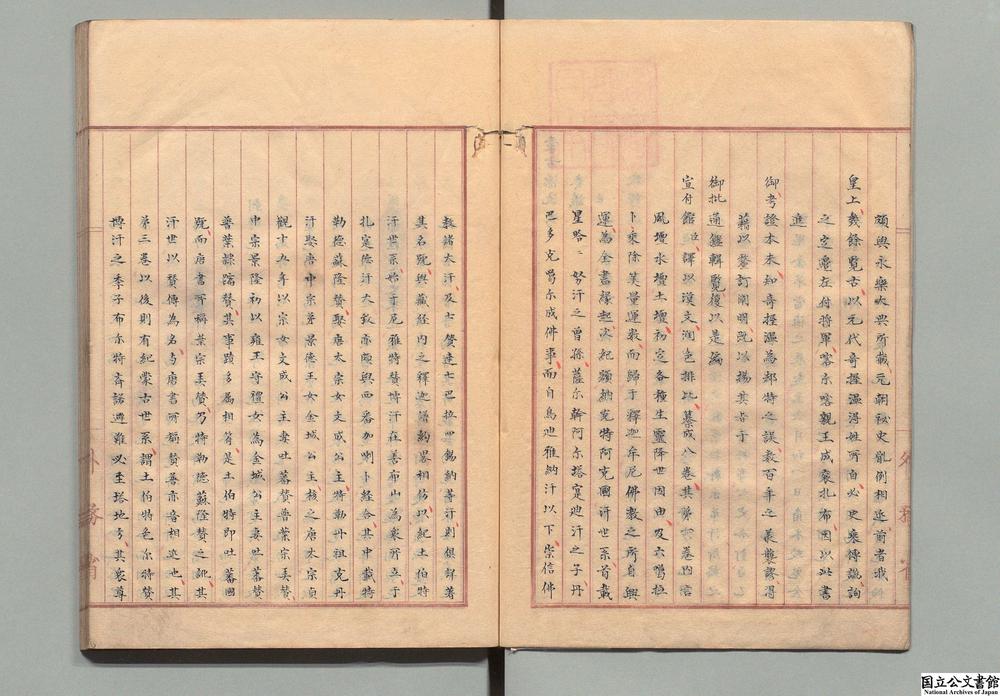 頗與永樂大典所載元朝秘史體例相近前者我
皇上幾餘覽古以元代奇握溫得姓所自必史乘傳訛詢
之定邊左付將軍喀尔喀親王成袞扎布因以此書
進
御考證本本知奇握溫為郤特之誤数百年之襲謬得
藉以釐訂闡明既以揭其旨于
御批通鑑輯覽復以是編
宣付館臣譯以漢文潤色排比纂成八卷其第一卷內言
風壇水壇土壇初定各種生靈降世因由及六噶拉
卜乘除笑量運数而歸于釋迦牟尼佛教之所自興
運為全書緣起次紀額納克特阿克國汗世系首載
星哈二努汗之曾孫薩尔斡阿尔塔寔迪汗之子丹
巴多克噶尔成佛事而自烏迪雅納汗以下崇信佛
教諸大汗及
其名既與藏經內之釋迦譜約畧相仿以紀土伯特
汗世系始于尼雅特贊博汗在善布山為衆所立于
扎寔德汗大致亦頗與西番加喇卜經合其中載特
勒德蘇隆贊娶唐太宗女文成公主特勒丹租克丹
汗娶唐中宗弟景德王女金城公主核之唐太宗貞
觀十五年以宗女文成公主妻吐蕃贊普葉宗弄贊
中宗景隆初以雍王守禮女為金城公主妻吐蕃贊
普葉隸蹜贊其事蹟多属相符是土伯特即吐蕃國
既而唐書所稱葉宗弄贊乃特勒德蘇隆贊之訛其
汗世以贊傳為名与唐書所稱贊普亦音相近也其
第三卷以後則有紀蒙古世系謂土伯特色尔特贊
博汗之季子布尔特齋諾避難必塔地方其衆尊
外務省
国立公文書館
National Archives of Japan